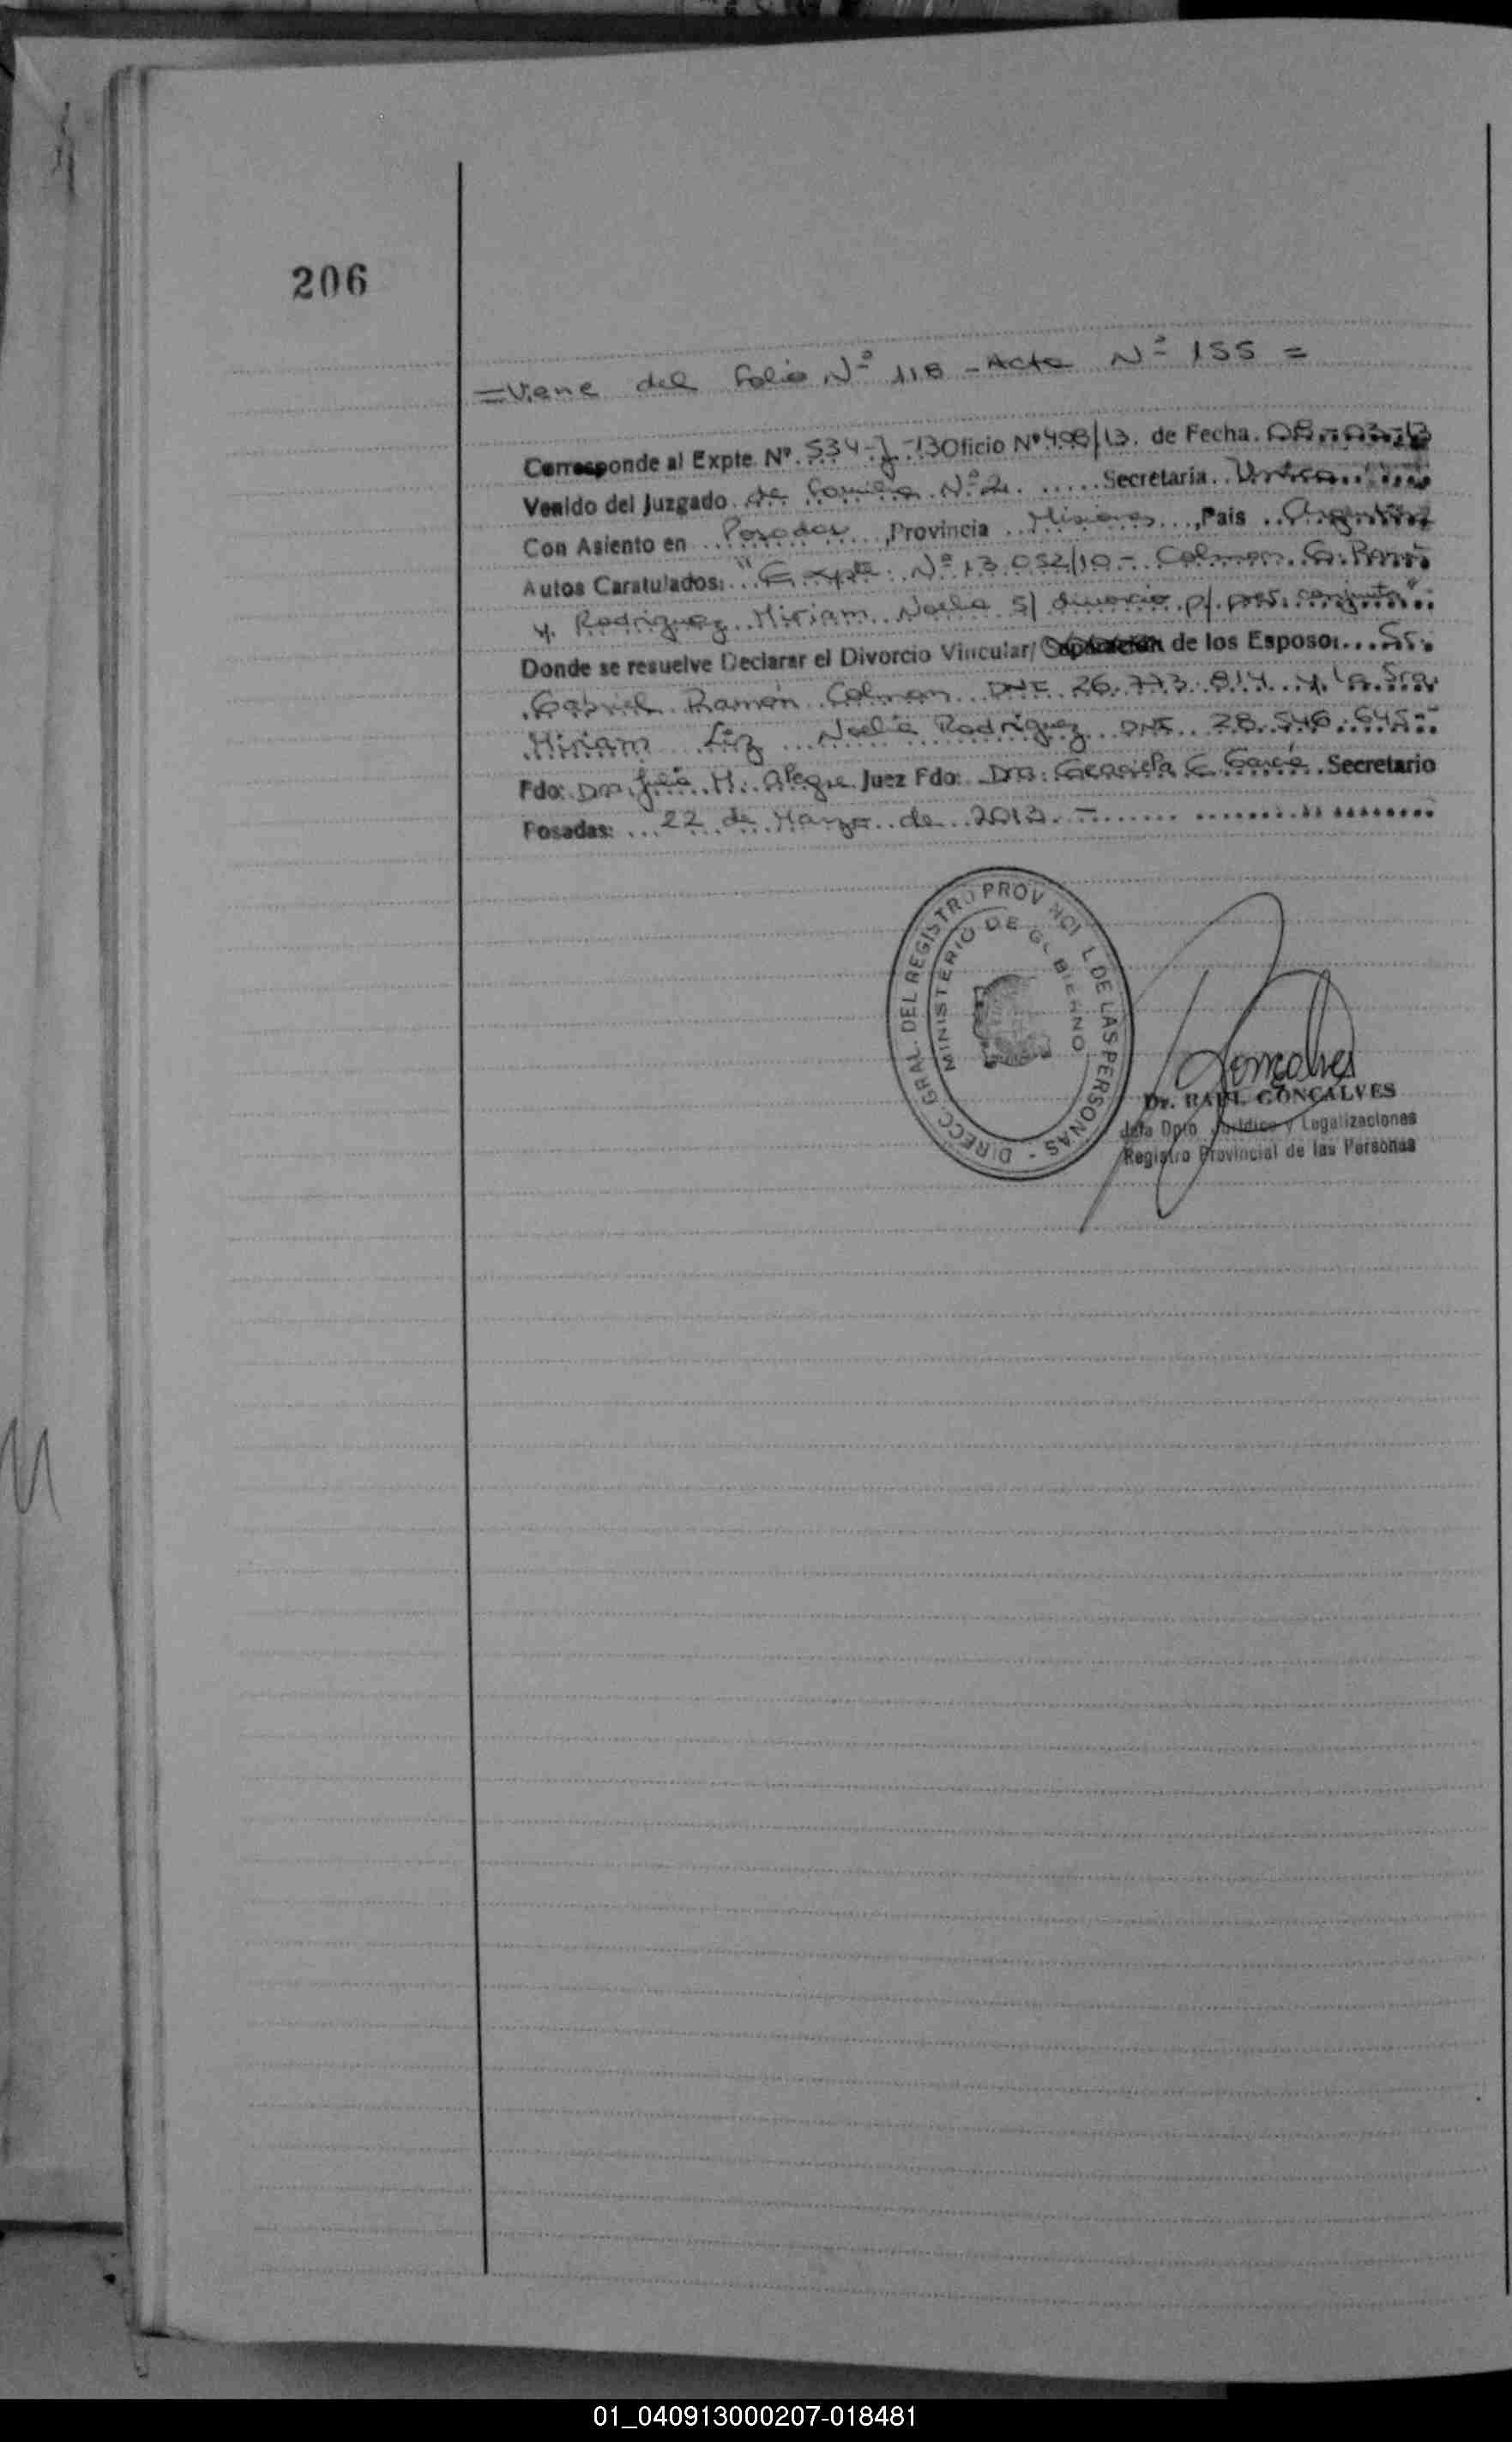 206
=Viene del folio Nº 118 - Acta Nº 155 =
Corresponde al Expte. Nº. 534-J-13 Oficio Nº 498/13. de Fecha. 08-03-13
Venido del Juzgado de familia Nº 2. ..... Secretaría.. Unica
Con Asiento en ... Posadas ...., Provincia .. Misiones ..., Pais .. Argentina
Autos Caratulados: "Expte. Nº 13.052/10 - Colman G. Ramón
y. Rodriguez Miriam Noelia s/ divorcio p/ pres. conjunta"
Donde se resuelve Declarar el Divorcio Vincular/ Separación de los Esposos... Sr.
Gabriel Ramón Colman DNI 26.773.814 y la Sra.
Miriam Liz Noelia Rodriguez DNI 28.546.645-
Fdo: Dra. Julia H. Alegre Juez Fdo: Dra. Graciela C. García Secretario
Posadas: ... 22 de Marzo de 2013 -
DIRECC. GRAL. DEL REGISTRO PROVINCIAL DE LAS PERSONAS -
MINISTERIO DE GOBIERNO
Gonçalves
Dr. RAUL GONÇALVES
Jefe Dpto. Jurídico y Legalizaciones
Registro Provincial de las Personas
01_040913000207-018481